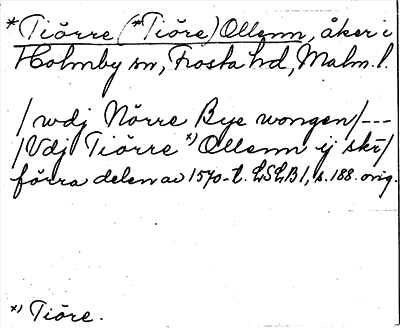 *Tiörre (*Tiöre) Ollenn, åker i
Holmby sn, Frosta hd, Malm. l.
/ wdj Nörre Bye wongen/---
/Vdj Tiörre x) Ollenn ij skr/
förra delen av 1570-t. LSLB 1, s. 188. orig.
x) Tiöre.